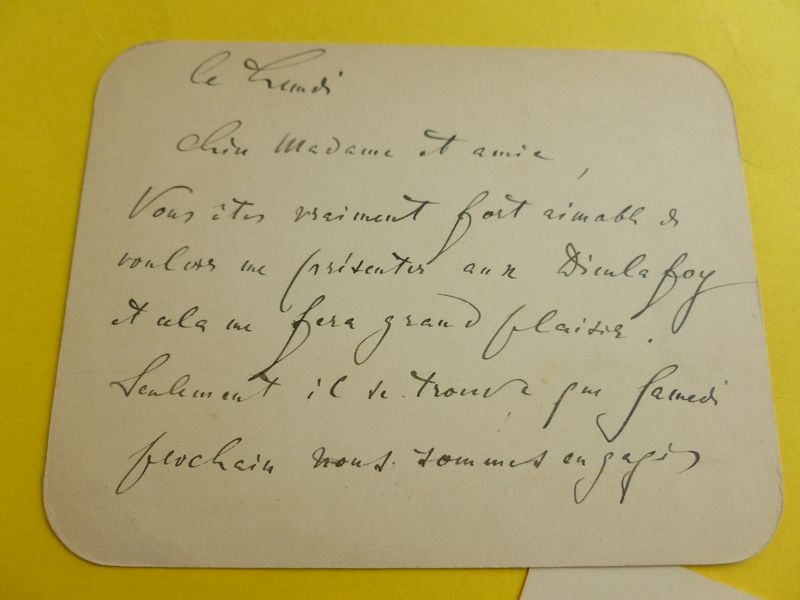 ce Lundi
Chère Madame et amie,
Vous êtes vraiment fort aimable de
vouloir me présenter aux Dieulafoy
et cela me fera grand plaisir.
Seulement il se trouve que Samedi
prochain nous sommes engagés